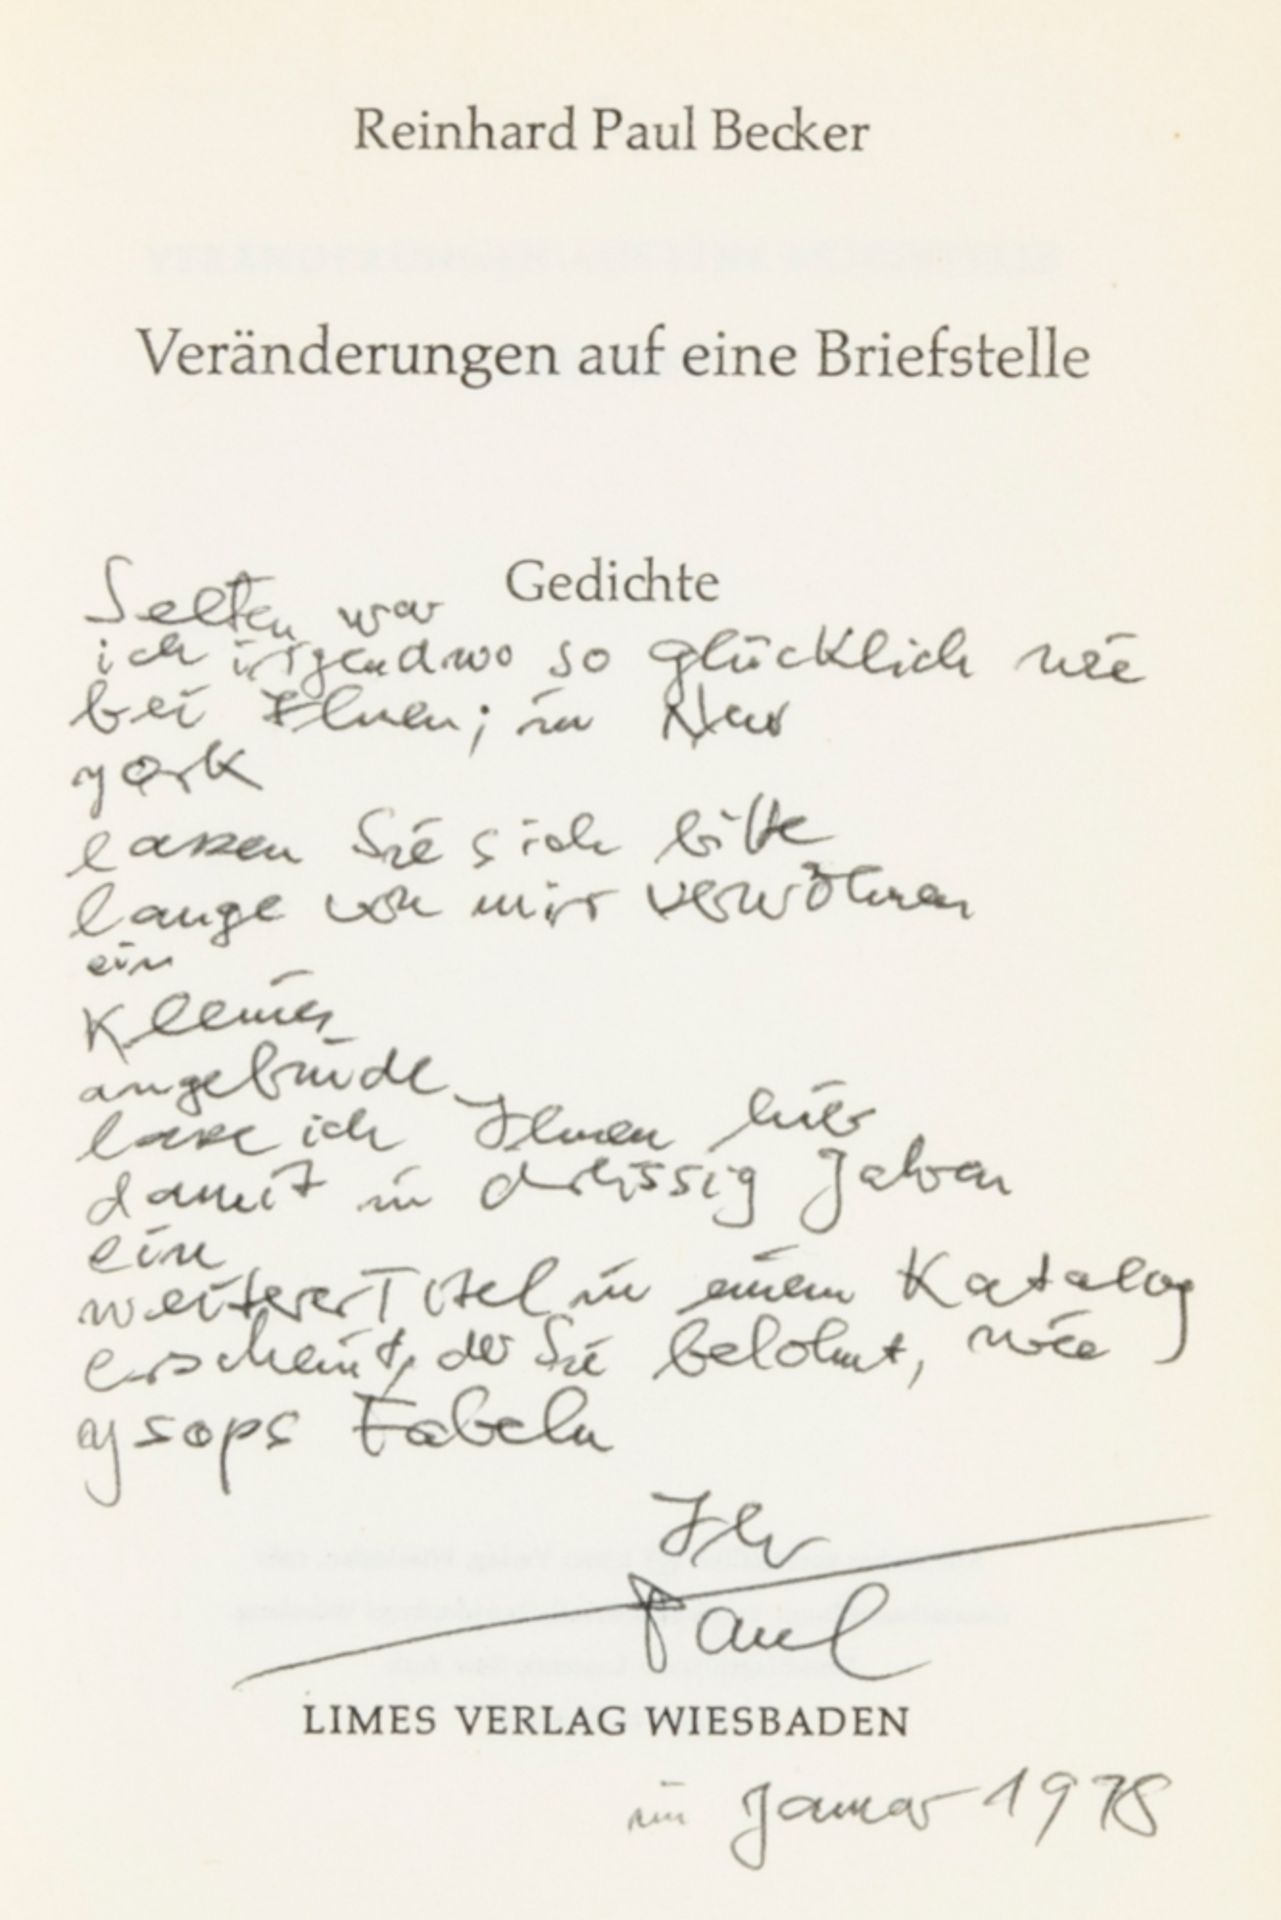 Reinhard Paul Becker
Veränderungen auf eine Briefstelle
Gedichte
Selten war
ich irgendwo so glücklich wie
bei Ihnen; in New
york
lassen Sie sich bitte
lange von mir verwöhnen
ein
Kleines
angebinde
lasse ich Ihnen hier
damit in dreissig Jahren
ein
weiterer Titel in einem Katalog
erscheint, der Sie belohnt, wie
ysops Fabeln
Ihr
Paul
LIMES VERLAG WIESBADEN
im Januar 1978